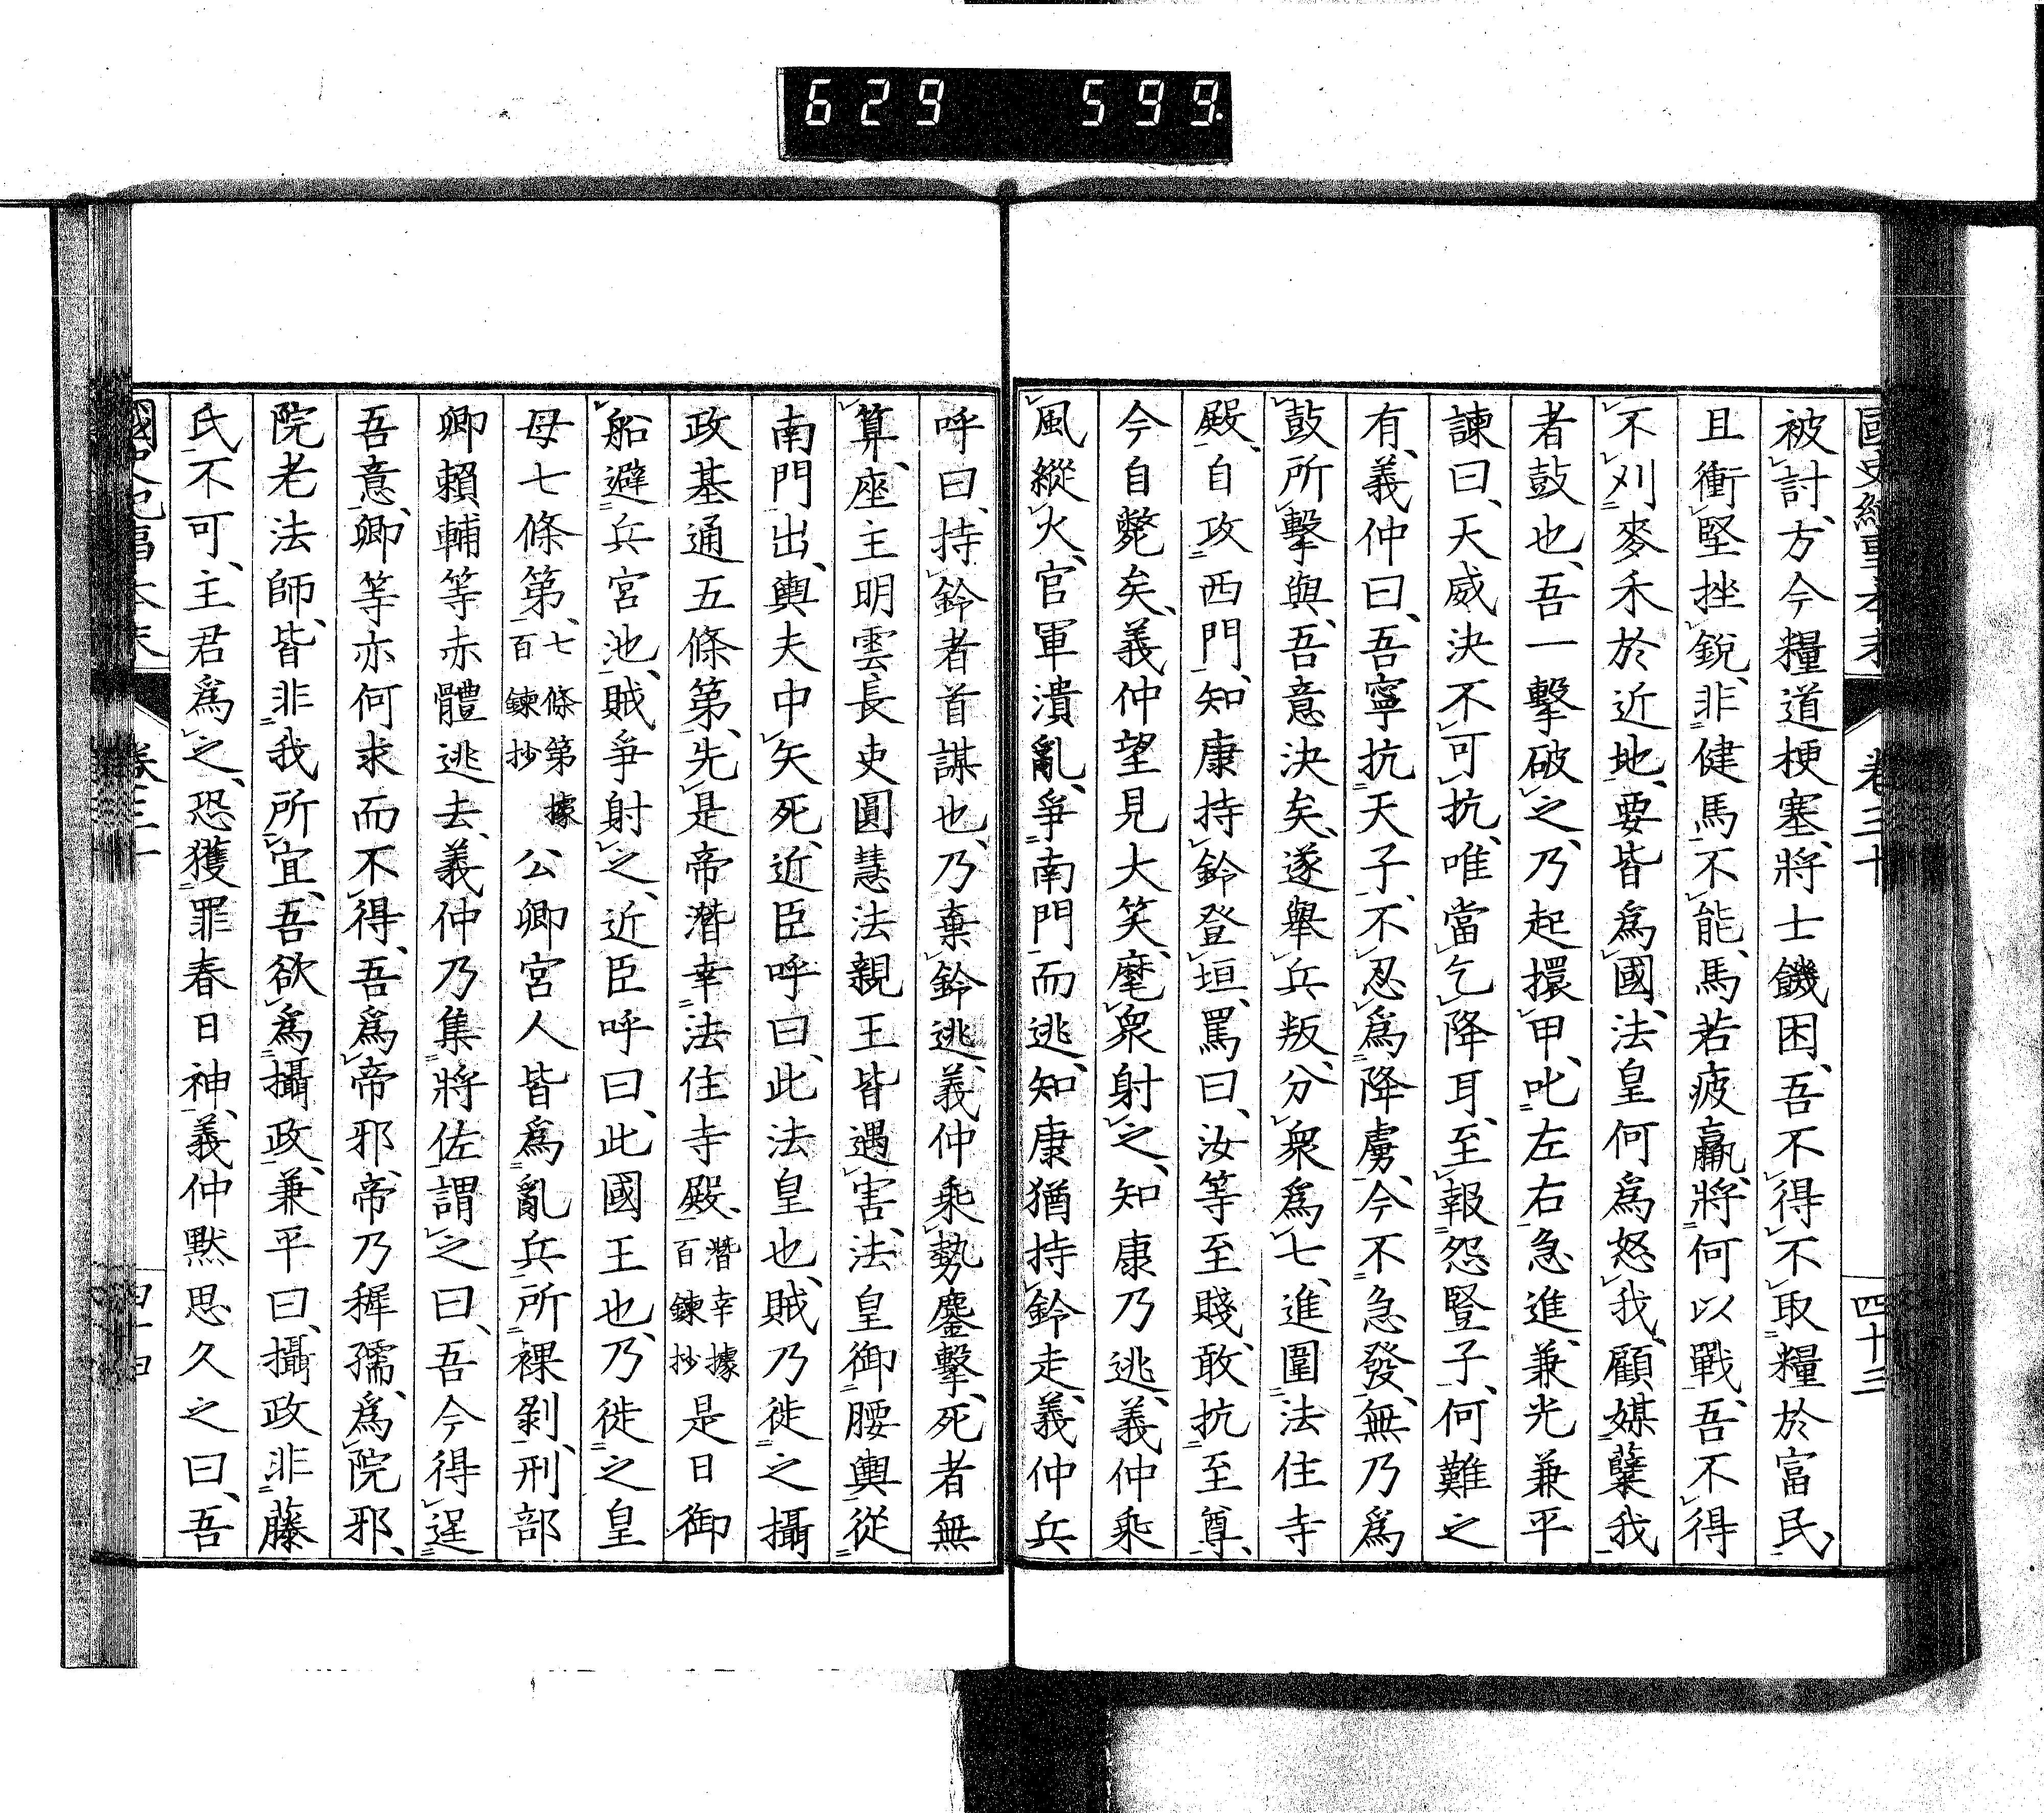 629 599.
國史紀事本末 卷三十 四十三
被討、方今糧道梗塞、將士饑困、吾不得不取糧於富民、
且衝堅挫銳、非健馬不能、馬若疲羸、將何以戰、吾不得
不刈麥禾於近地、要皆爲國、法皇何爲怒我、顧媒蘗我
者鼓也、吾一擊破之、乃起擐甲、叱左右急進、兼光兼平
諫曰、天威決不可抗、唯當乞降耳、至報怨豎子、何難之
有、義仲曰、吾寧抗天子、不忍爲降虜、今不急發、無乃爲
鼓所擊與、吾意決矣、遂舉兵叛、分衆爲七、進圍法住寺
殿、自攻西門、知康持鈴登垣、罵曰、汝等至賤、敢抗至尊、
今自斃矣、義仲望見大笑、麾衆射之、知康乃逃、義仲乘
風縱火、官軍潰亂、爭南門而逃、知康猶持鈴走、義仲兵
呼曰、持鈴者首謀也、乃棄鈴逃、義仲乘勢鏖擊、死者無
算、座主明雲長吏圓慧法親王皆遇害、法皇御腰輿從
南門出、輿夫中矢死、近臣呼曰、此法皇也、賊乃徙之攝
政基通五條第、先是帝潛幸法住寺殿、潛幸據百鍊抄是日御
船避兵宮池、賊爭射之、近臣呼曰、此國王也、乃徙之皇
母七條第、七條第據百鍊抄公卿宮人皆爲亂兵所裸剝、刑部
卿賴輔等赤體逃去、義仲乃集將佐謂之曰、吾今得逞
吾意、卿等亦何求而不得、吾爲帝邪、帝乃穉孺、爲院邪、
院老法師、皆非我所宜、吾欲爲攝政、兼平曰、攝政非藤
氏不可、主君爲之、恐獲罪春日神、義仲默思久之曰、吾